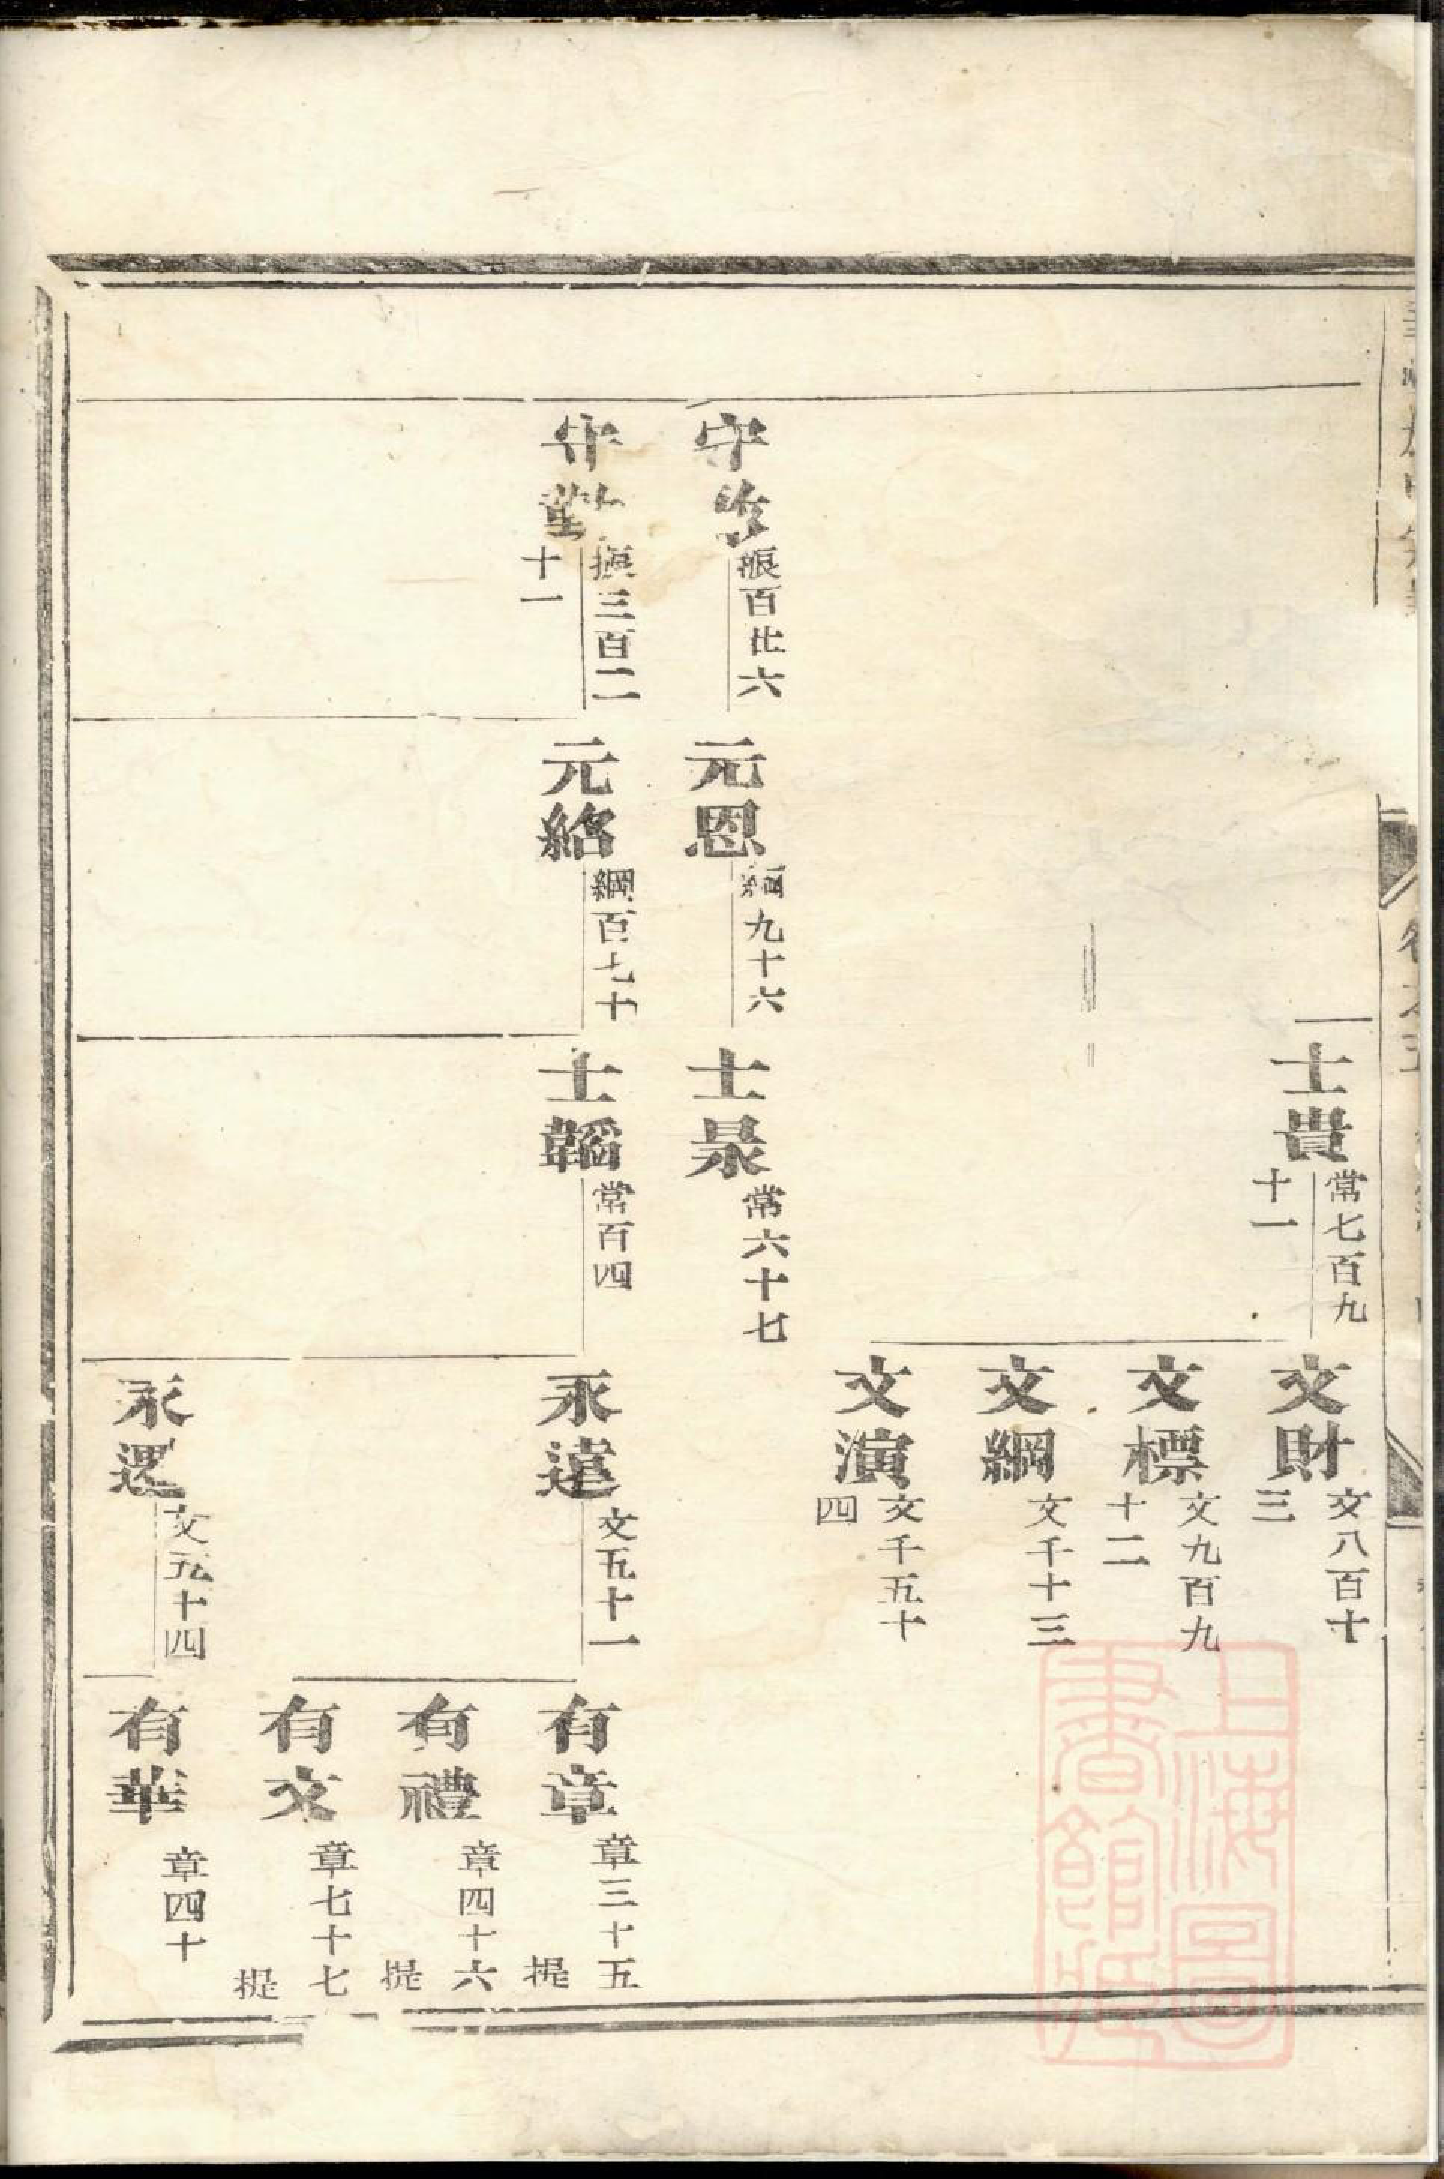 士貴
常七百九
十一
文財
文八百十
三
文標
文九百九
十二
文綱
文千十三
文演
文千五十
四
守
百廿六
元恩
綱九十六
士泉
常六十七
守勤
三百二
十一
元綌
綱百七十
士韜
常百四
永遠
文五十一
有章
章三十五
提
有禮
章四十六
提
有文
章七十七
提
永選
文五十四
有華
章四十
卷之五
上海圖
書館藏